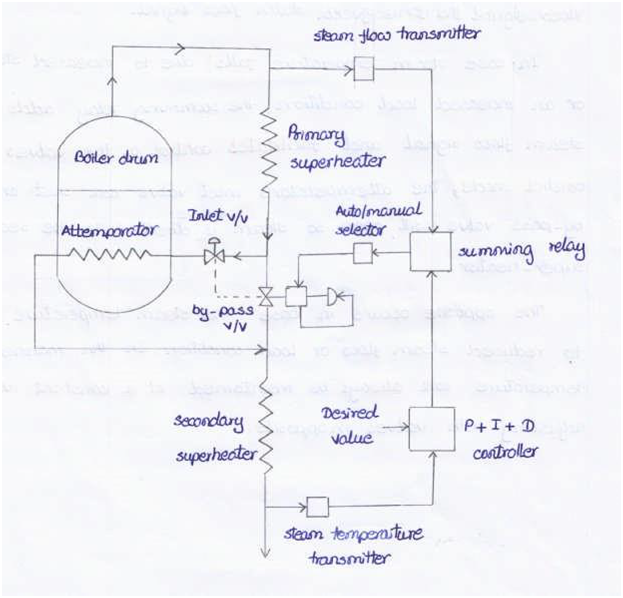 steam flow transmitter
Primary
superheater
Boiler drum
Attemparator
Inlet v/v
Auto/manual
selector
summing relay
by-pass
v/v
Desired
value
P + I + D
controller
secondary
superheater
steam temperature
transmitter